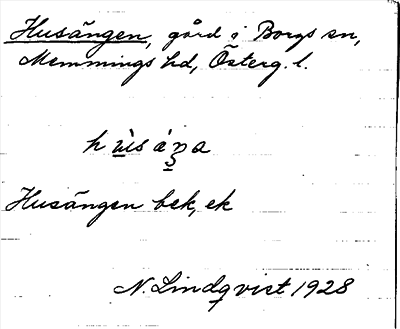 Husängen, gård i Borgs sn,
Memmings hd, Österg. l.
Husängen bek, ek
N. Lindqvist 1928